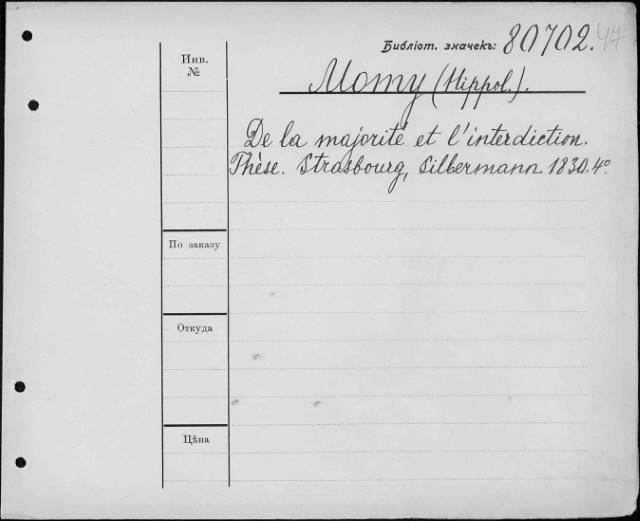 Библіот. значекъ: 80702.47
Инв. №
Momy (Hippol.).
De la majorité et l'interdiction.
Thèse. Strasbourg, Silbermann. 1830. 4º
По заказу
Откуда
Цѣна